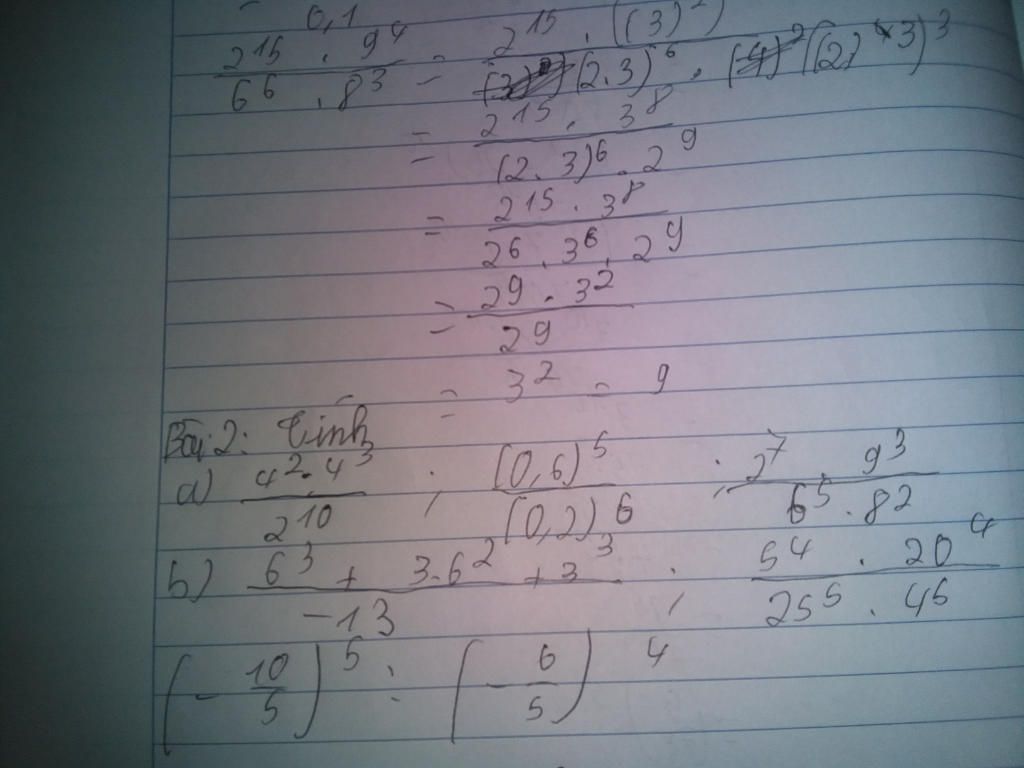 0,1
2^15 . 9^4 / 6^6 . 8^3 = 2^15 . ((3)^2) / (2.3)^6 . ((2)^3)^3
= 2^15 . 3^8 / (2.3)^6 . 2^9
= 2^15 . 3^8 / 2^6 . 3^6 . 2^9
= 2^9 . 3^2 / 2^9
= 3^2 = 9
Bài 2: Tính
a) 4^2.4^3 / 2^10 ; (0,6)^5 / (0,2)^6 ; 2^7 . 9^3 / 6^5 . 8^2
b) 6^3 + 3.6^2 + 3^3 / -13 ; 5^4 . 20^4 / 25^5 . 4^5
(- 10/5)^5 . (- 6/5)^4